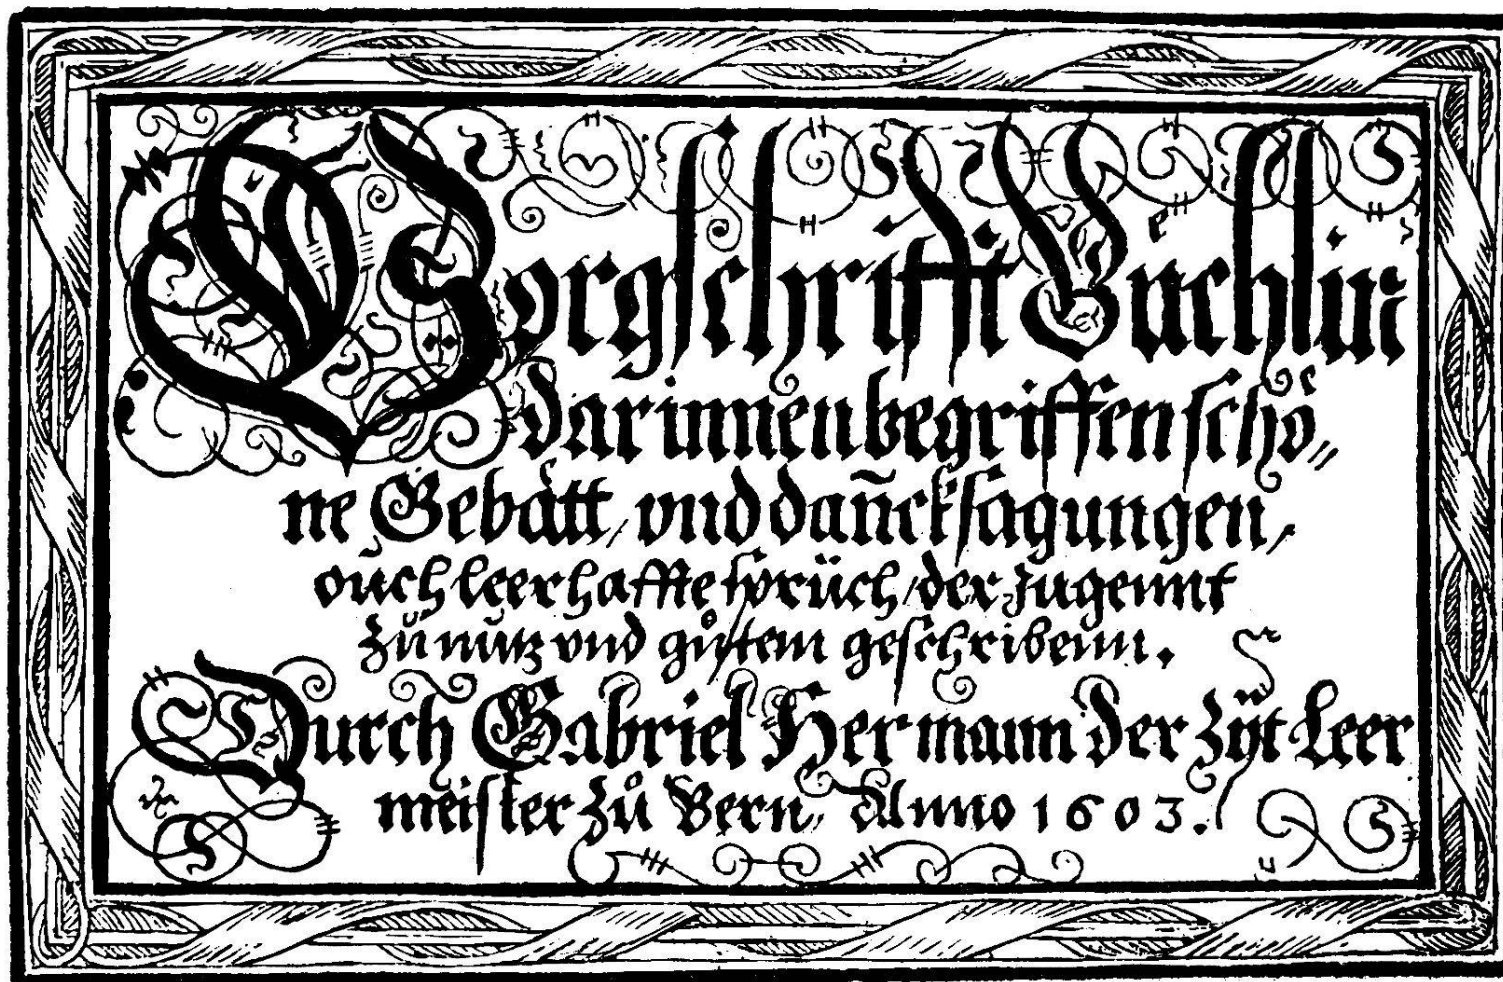 Vorgschrifft Büchlin
darinnen begriffen schö„
ne Gebätt, vnd dañcksagungen,
oůch leerhaffte sprüch, der Jugennt
zů nutz vnd gůtem geschribenn.
Durch Gabriel Hermann der Zÿt Leer
meister zů Bern, Anno 1603.